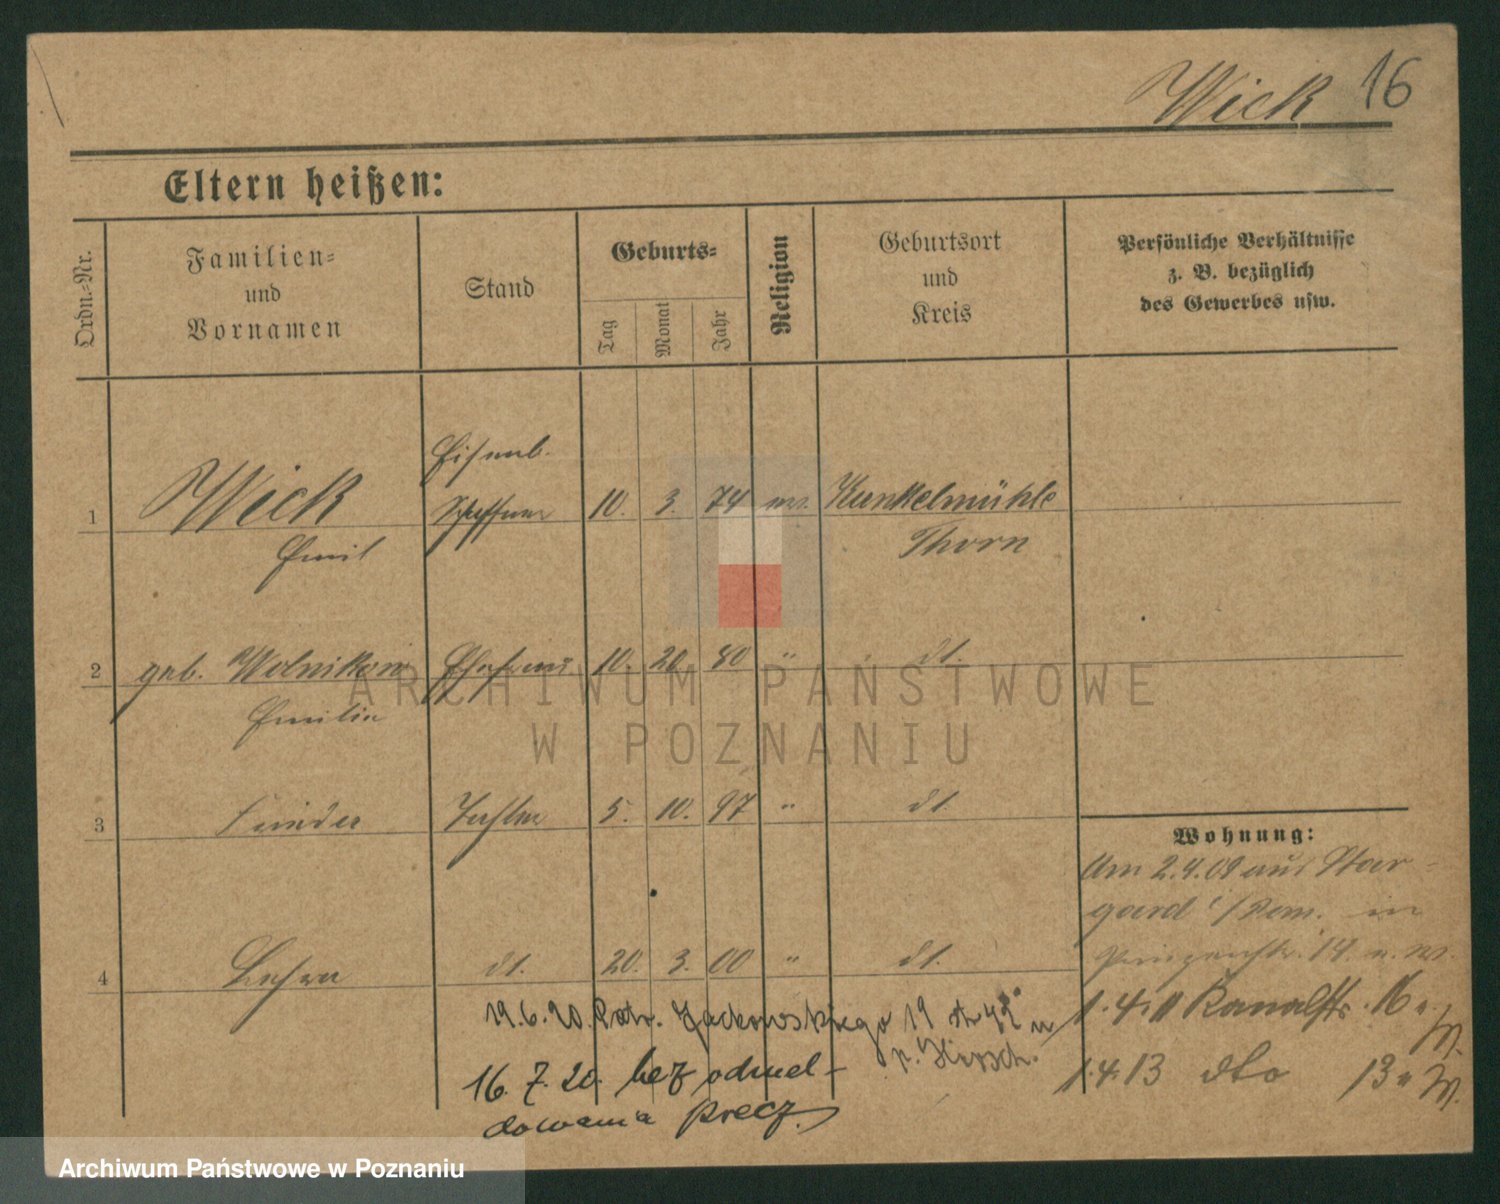 Wick 16
Eltern heißen:
Ordn.-Nr.
Familien-
und
Vornamen
Stand
Geburts-
Tag
Monat
Jahr
Religion
Geburtsort
und
Kreis
Persönliche Verhältnisse
z. B. bezüglich
des Gewerbes usw.
Eisenb.
1 Wick Schaffner 10. 3. 74 Kunkelmühle
Emil Thorn
2 geb. Wolnikow Ehefrau 10. 20 80 " dt.
Emilie
3 Frieda Tochter 5. 10. 97 " dt.
Wohnung:
Am 2.4.08 aus Star-
gard i/Pom. in
Prinzenstr. 14. u. W.
4 dt. 20. 3. 00 " dt.
1.4.11 Kanalstr. 16 u. W.
19.6.20. Patr. Jackowskiego 19
p. Hirsch.
1.4.13 dto 13 u W.
16.7.20. bez odmel-
dowania precz.
ARCHIWUM PAŃSTWOWE
W POZNANIU
Archiwum Państwowe w Poznaniu